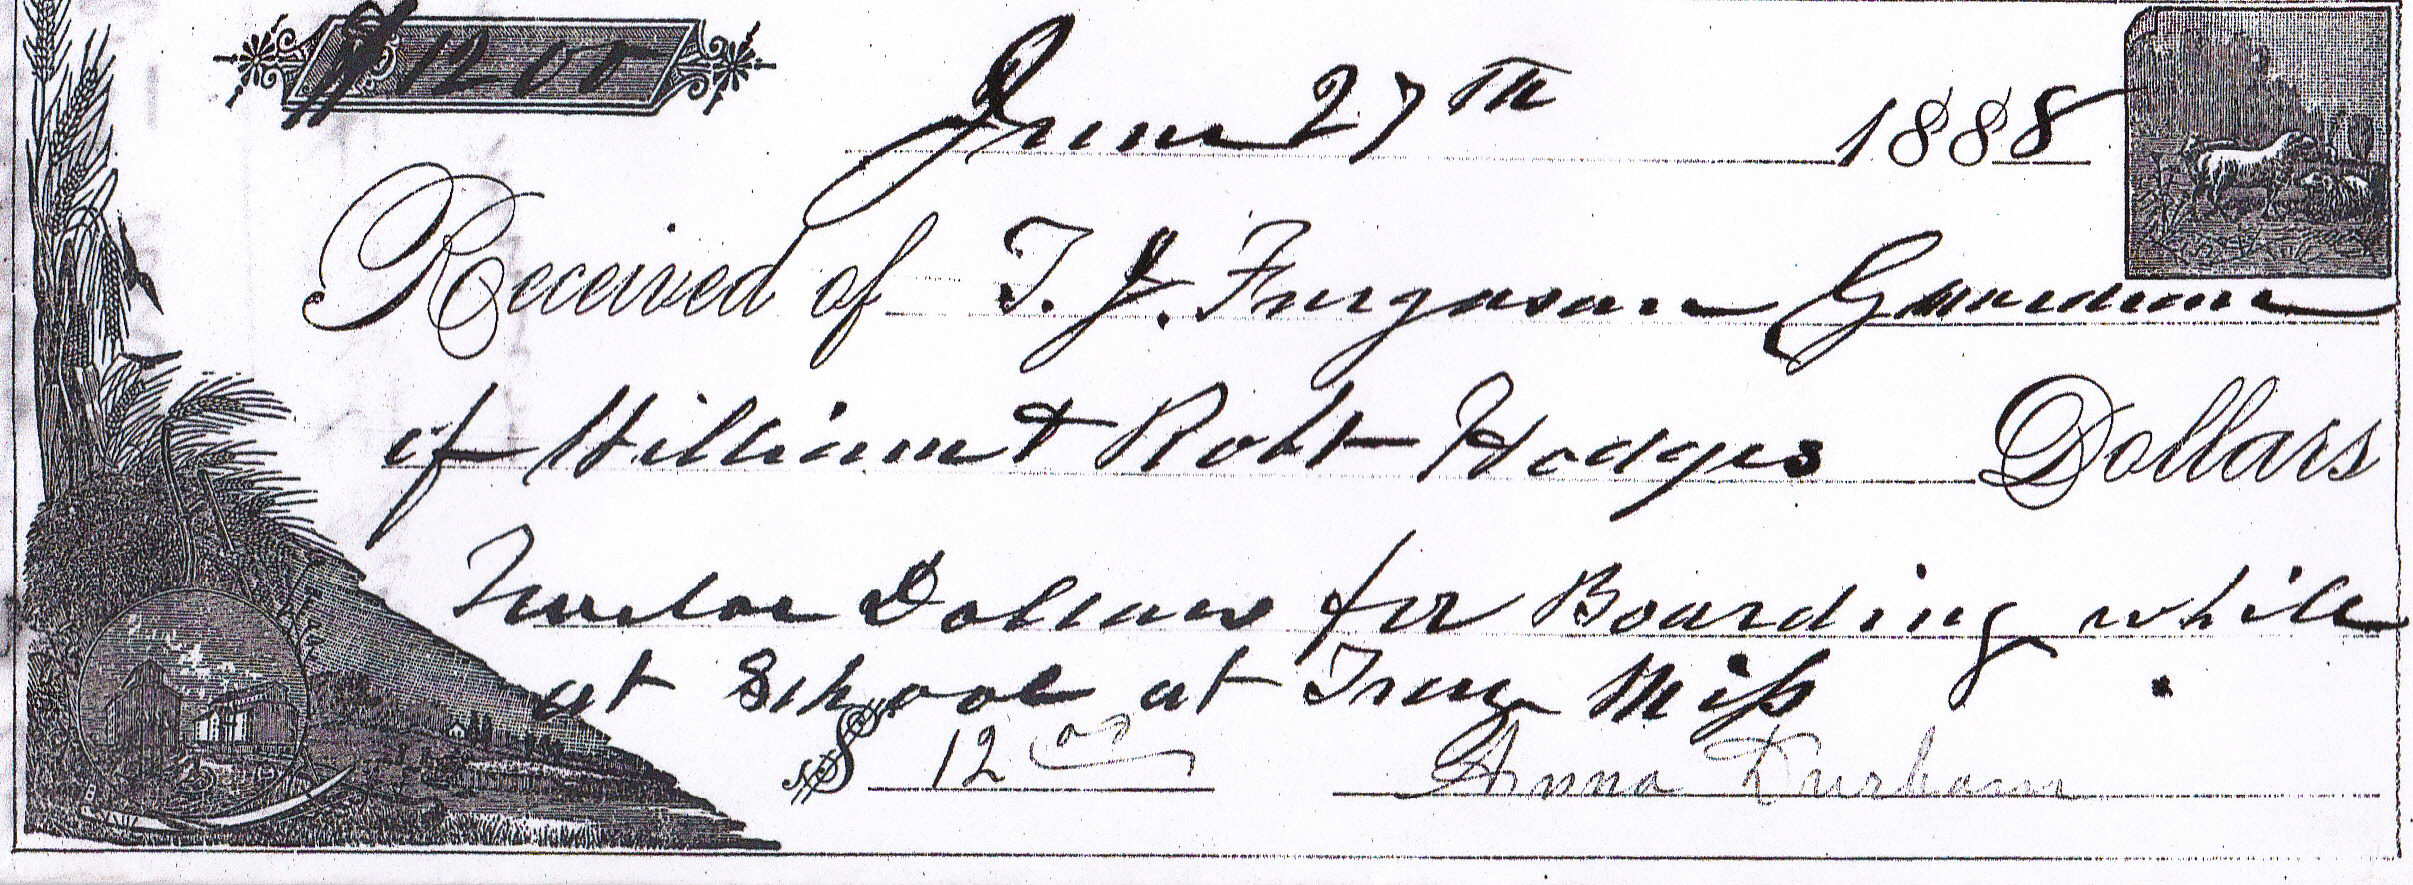 $12.00
June 27th 1888
Received of T. J. Furgason Guardian
of William & Robt Hodges Dollars
Twelve Dollars for Boarding while
at School at Troy Miss
$ 12 00 Anna Durham